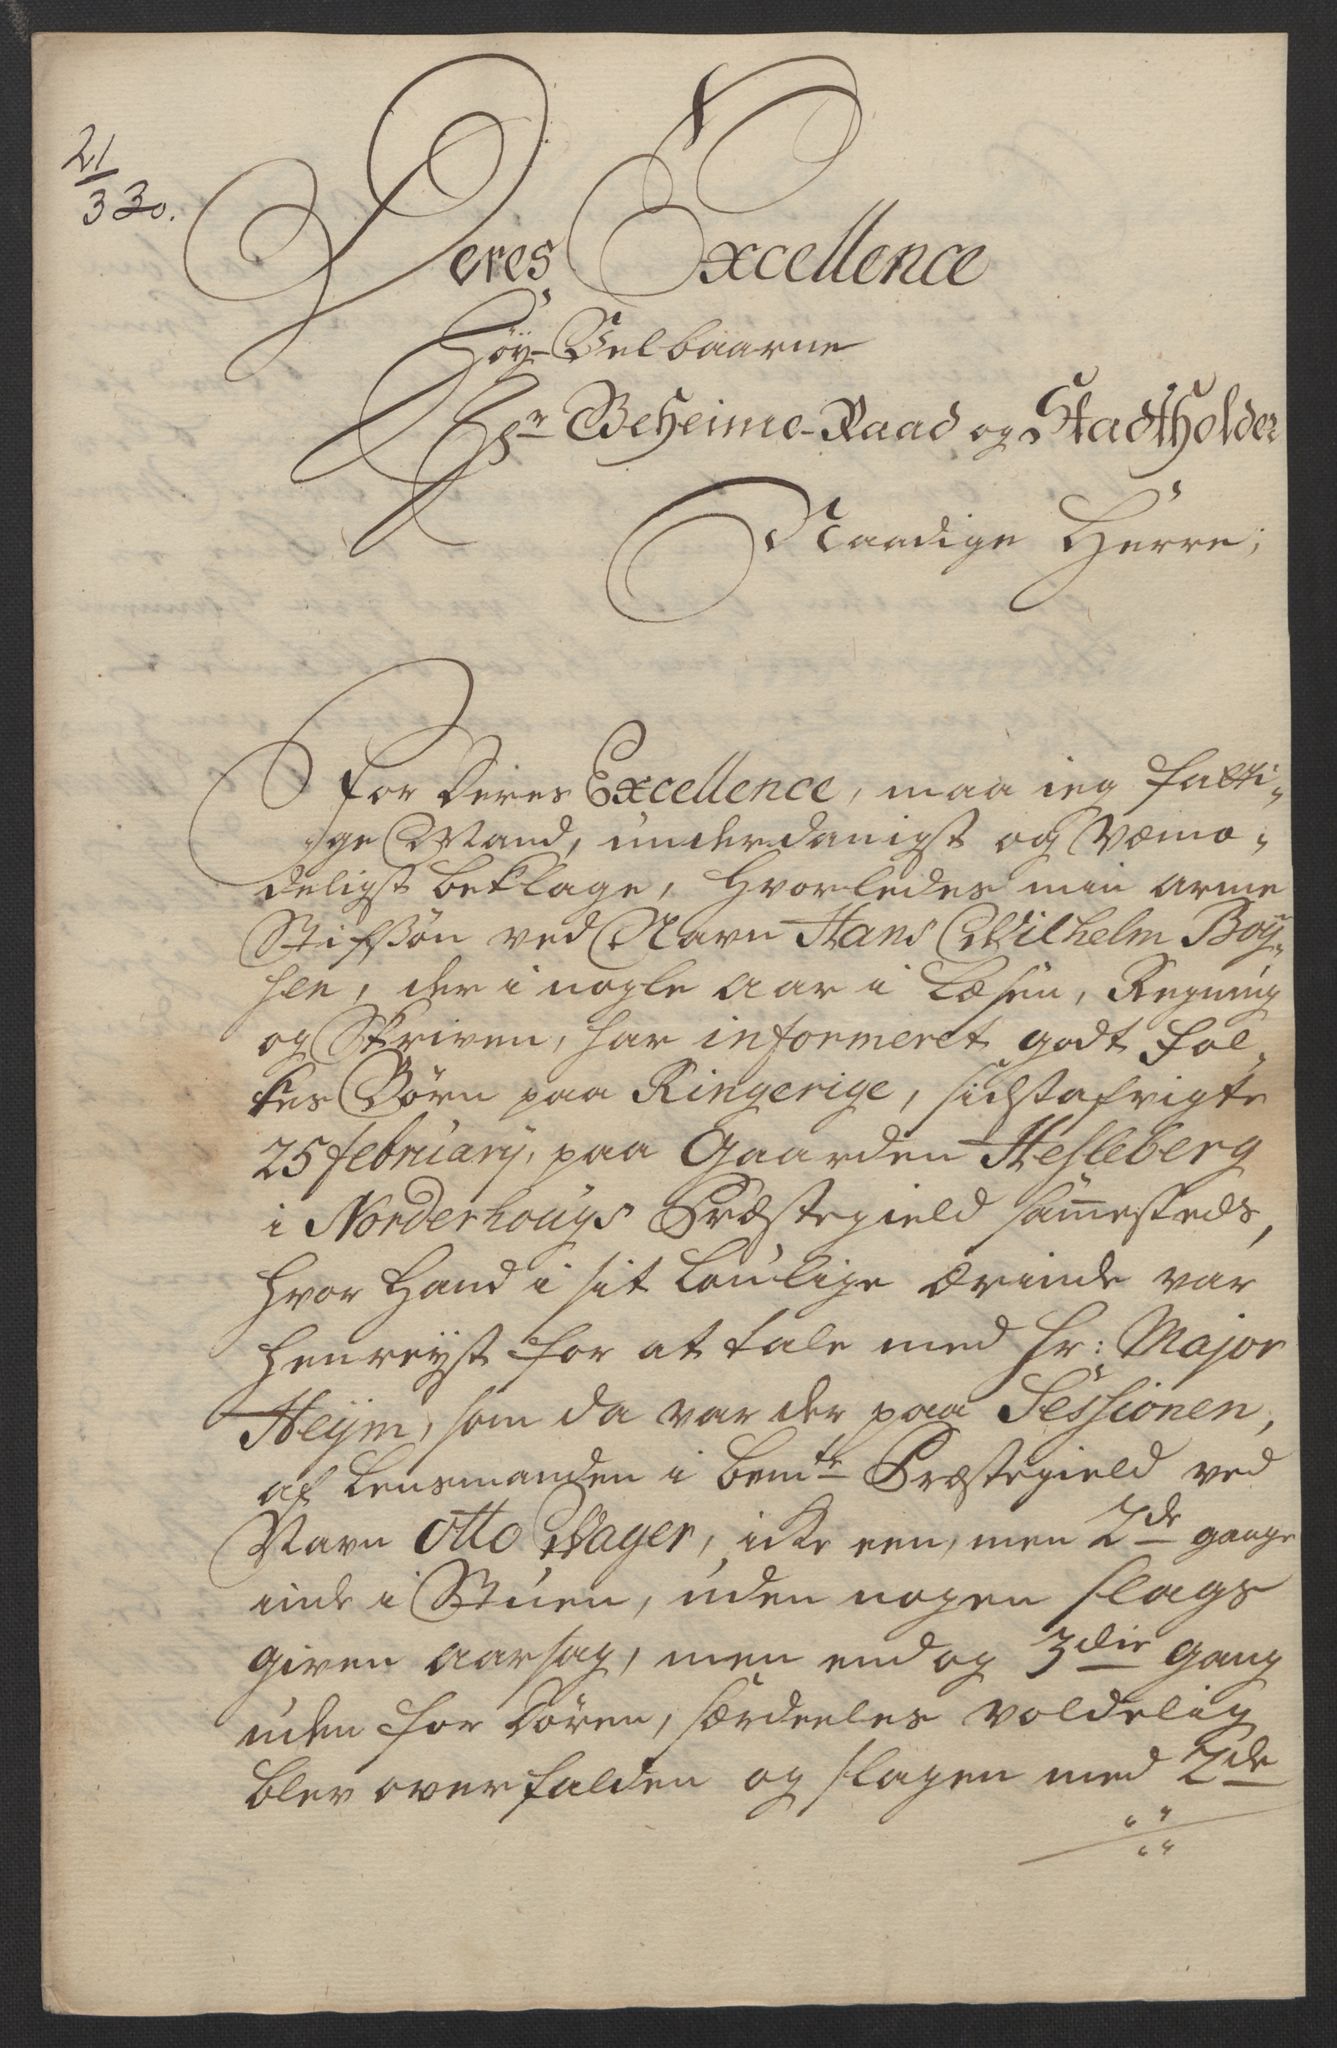 21
3 30.
Deres Excellence
Höy-Velbaarne
Hr Geheime-Raad og Stadtholder
Naadige Herre,
For Deres Excellence, maa ieg fatti-
ge Mand, underdanigst og Vemo-
deligst beklage, hvorledes min arme
Stifsön ved Navn Hans Wilhelm Boÿ-
sen, der i nogle aar i Læsen, Regning
og Skriven, har informeret godt Fol-
kes Börn paa Ringerige, sidstafvigte
25 februarij, paa Gaarden Hesleberg
i Norderhougs Præstegield sammesteds,
hvor hand i sit lovlige Ærinde var
henreÿst for at tale med Hr: Major
Heijm, som da var der paa Sessionen,
af Lensmanden i bemte Præstegield ved
Navn Otto Wager, icke een, men 2de gange
inde i Stuen, uden nogen slags
given aarsag, men endog 3die gang
uden for Dören, særdeeles voldelig
blev overfalden og slagen med 2de